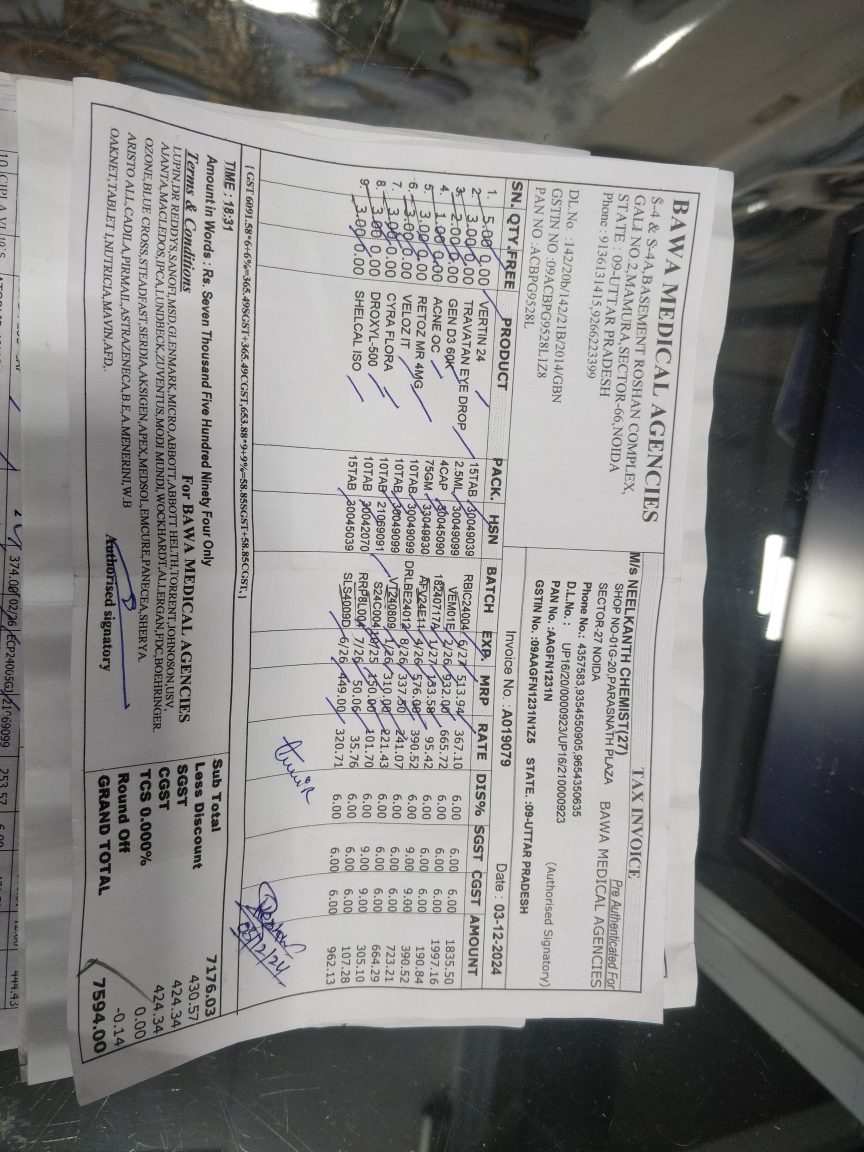 BAWA MEDICAL AGENCIES
S-4 & S-4A,BASEMENT ROSHAN COMPLEX,
GALI NO 2,MAMURA,SECTOR-66,NOIDA
STATE : 09-UTTAR PRADESH
Phone : 9136131415,9266223399
DL.No. :142/20b/142/21B/2014/GBN
GSTIN NO :09ACBPG9528L1Z8
PAN NO :ACBPG9528L
TAX INVOICE
Pre Authenticated For
M/s NEELKANTH CHEMIST(27)
SHOP NO-01G-20,PARASNATH PLAZA BAWA MEDICAL AGENCIES
SECTOR-27 NOIDA
Phone No.: 4357583,9354550905,9654350635
D.L.No. : UP16/20/0000923/UP16/210000923
PAN No. :AAGFN1231N (Authorised Signatory)
GSTIN No. :09AAGFN1231N1Z5 STATE. :09-UTTAR PRADESH
Invoice No. : A019079 Date : 03-12-2024
SN. QTY.FREE PRODUCT PACK. HSN BATCH EXP. MRP RATE DIS% SGST CGST AMOUNT
1. 5.00 0.00 VERTIN 24 15TAB 30049039 RBIC24004 6/27 513.94 367.10 6.00 6.00 6.00 1835.50
2. 3.00 0.00 TRAVATAN EYE DROP 2.5ML 30049099 VEM01E 2/26 932.00 665.72 6.00 6.00 6.00 1997.16
3. 2.00 0.00 GEN D3 60K 4CAP 30045090 1/27 133.58 95.42 6.00 6.00 6.00 190.84
4. 1.00 0.00 ACNE OC 75GM 33049930 4/26 576.00 390.52 6.00 9.00 9.00 390.52
5. 3.00 0.00 RETOZ MR 4MG 10TAB 30049099 DRLBE24012 8/26 337.50 241.07 6.00 6.00 6.00 723.21
6. 3.00 0.00 VELOZ IT 10TAB 30049099 VT240809 1/26 310.00 221.43 6.00 6.00 6.00 664.29
7. 3.00 0.00 CYRA FLORA 10TAB 21069091 150.00 101.70 6.00 9.00 9.00 305.10
8. 3.00 0.00 DROXYL-500 10TAB 30042070 7/26 50.06 35.76 6.00 6.00 6.00 107.28
9. 3.00 0.00 SHELCAL ISO 15TAB 30045039 SLS4009D 6/26 449.00 320.71 6.00 6.00 6.00 962.13
{GST 6091.58*6+6%=365.49SGST+365.49CGST,653.88*9+9%=58.85SGST+58.85CGST,}
TIME : 18:31
Amount in Words : Rs. Seven Thousand Five Hundred Ninety Four Only
Terms & Conditions For BAWA MEDICAL AGENCIES
LUPIN,DR REDDYS,SANOFI,MSD,GLENMARK,MICRO,ABBOTT,ABBOTT HELTH,TORRENT,JOHNOSON,USV,
AJANTA,MACLEDOS,IPCA,LUNDBECK,ZUVENTUS,MODI MUNDI,WOCKHARDT,ALLERGAN,FDC,BOEHRINGER
OZONE,BLUE CROSS,STEADFAST,SERDIA,AKSIGEN,APEX,MEDSOL,EMCURE,PANECEA,SHERYA
ARISTO ALL,CADILA,PIRMAIL,ASTRAZENECA,B.E,A.MENERINI,W.B
OAKNET,TABLET 1,NUTRICIA,MAVIN,AFD,
Authorised signatory
Sub Total 7176.03
Less Discount 430.57
SGST 424.34
CGST 424.34
TCS 0.000% 0.00
Round Off -0.14
GRAND TOTAL 7594.00